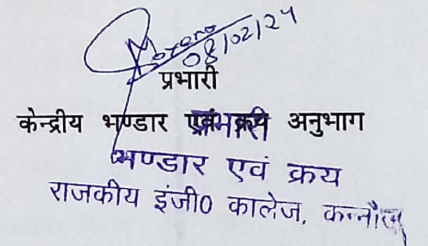 08/02/24
प्रभारी
केन्द्रीय भण्डार एवं क्रय अनुभाग
प्रभारी
भण्डार एवं क्रय
राजकीय इंजी0 कालेज, कन्नौज